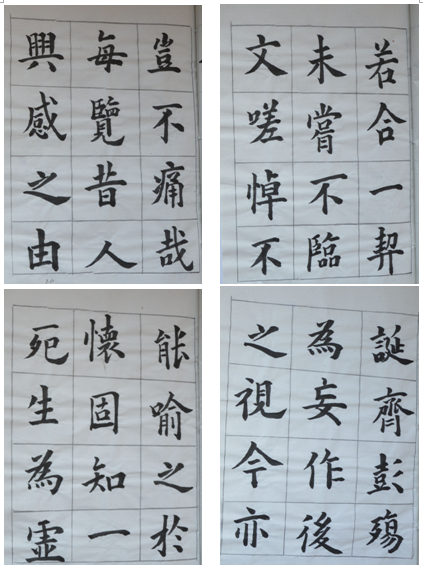 豈不痛哉
每覽昔人
興感之由
若合一契
未嘗不臨
文嗟悼不
能喻之於
懷固知一
死生為虛
誕齊彭殤
為妄作後
之視今亦